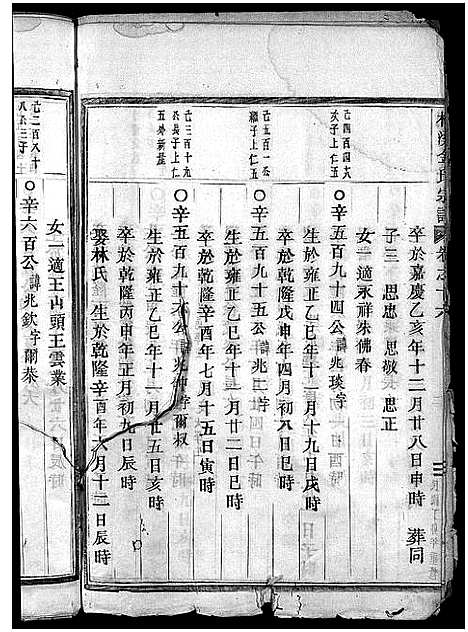 宗譜 卷之十六
卒於嘉慶乙亥年十二月廿八日申時 葬同
子三 思忠 思敬 思正
女一適永祥朱佛春
元四百四六
次子上仁五
○辛五百九十四公諱兆琰字
生於雍正乙巳年十一月十九日戌時
卒於乾隆戊申年四月初八日巳時
元五百一公
繼子上仁五
○辛五百九十五公諱兆二字
生於雍正乙巳年十一月廿二日巳時
卒於乾隆辛酉年七月十五日寅時
元三百十九
公長子上仁
五外新屋
○辛五百九十六公諱兆紳字爾叔
生於雍正乙巳年十一月廿五日亥時
卒於乾隆丙申年正月初九日辰時
娶林氏 生於乾隆辛酉年六月十二日辰時
女一適王山頭王雲業
元二百八十
○辛六百公諱兆欽字爾恭